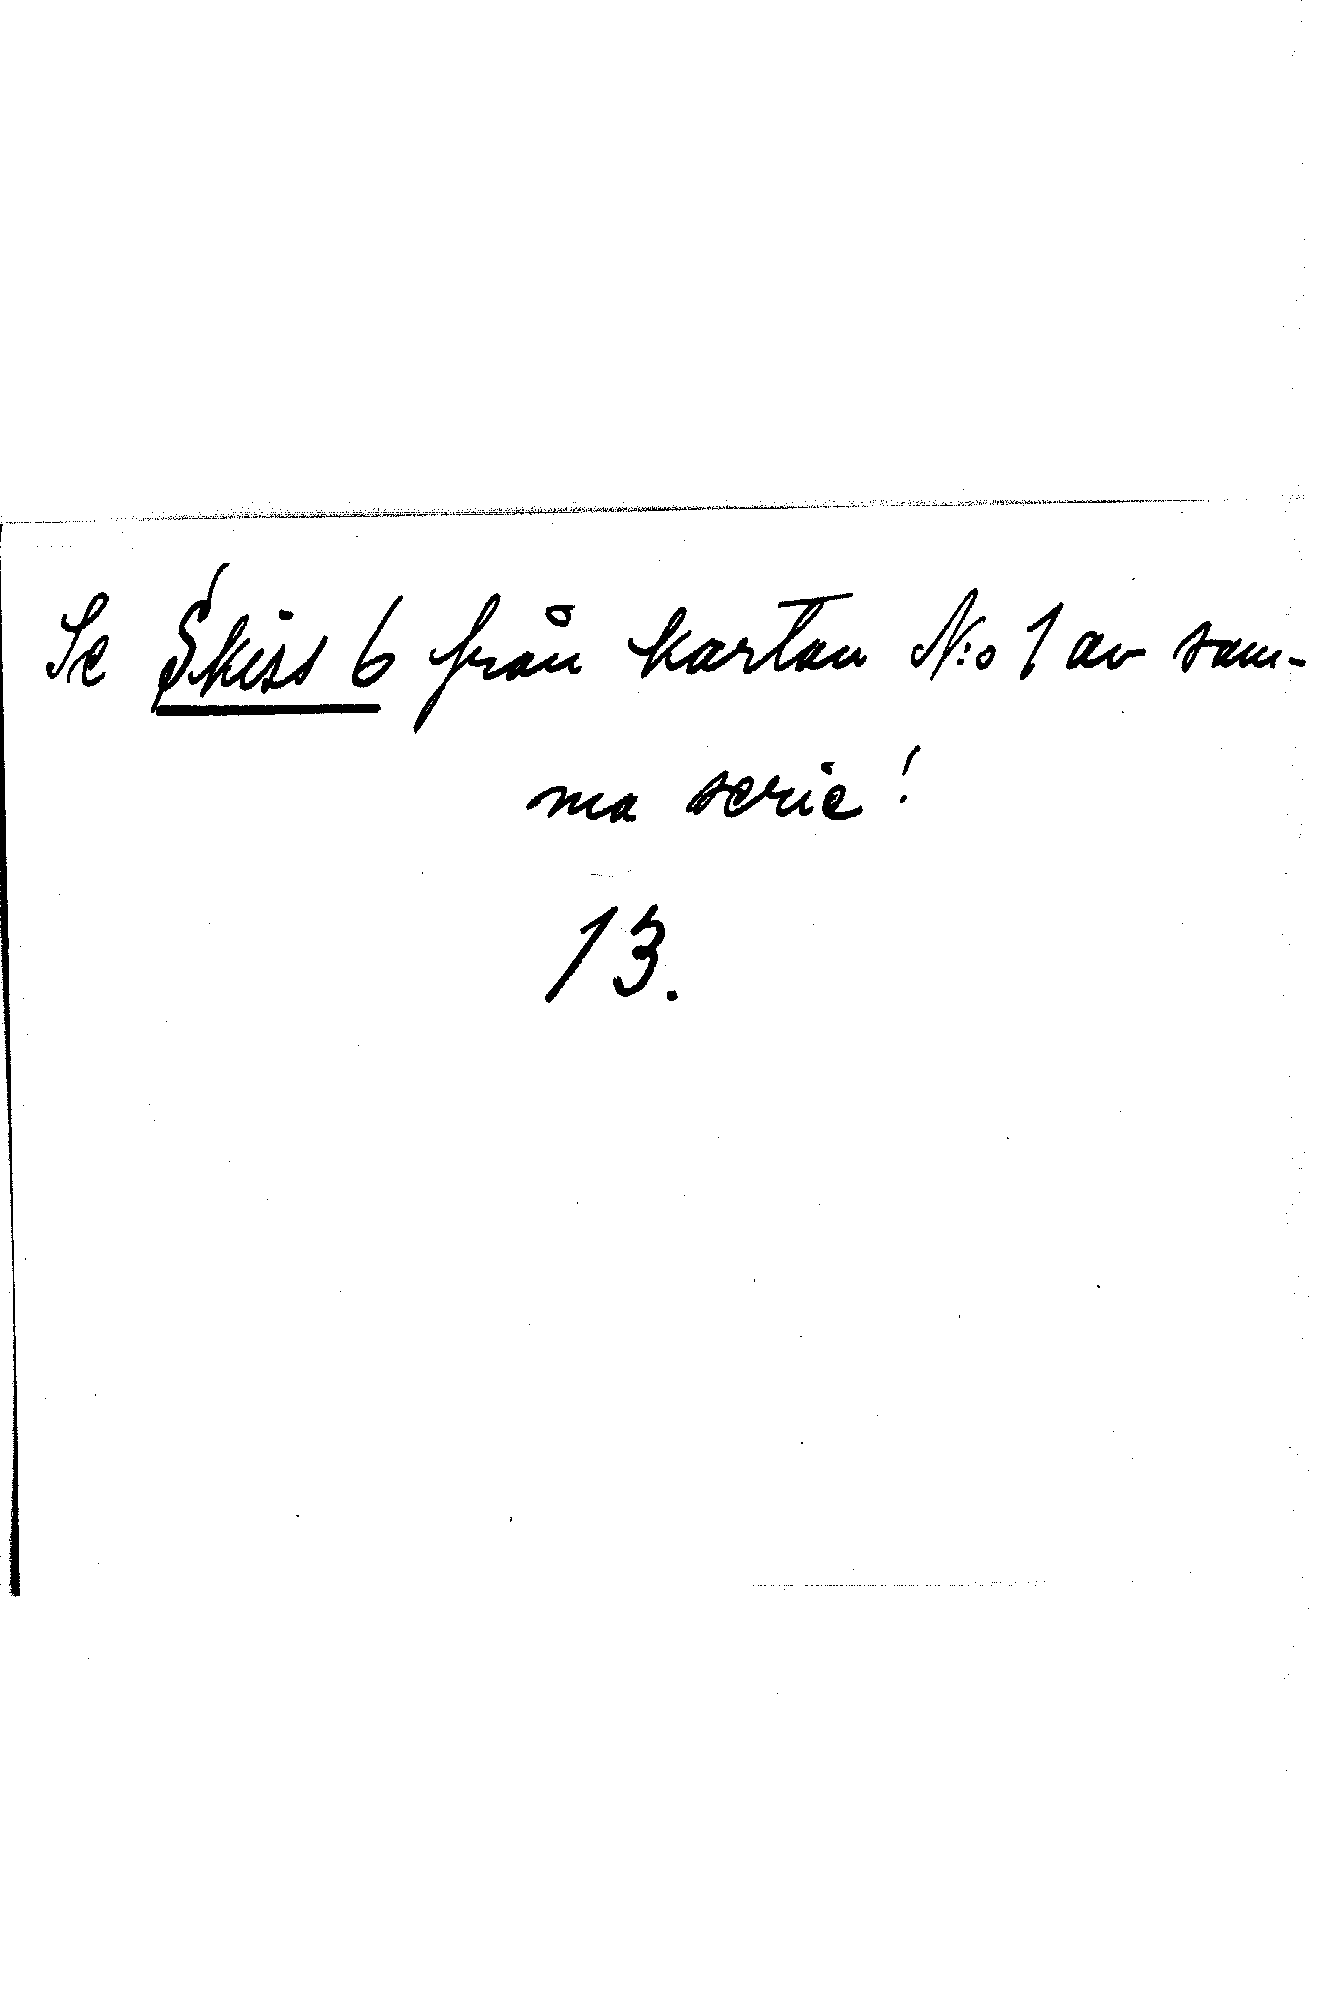 Se Skiss 6 från kartan N:o 1 av sam-
ma serie!
13.